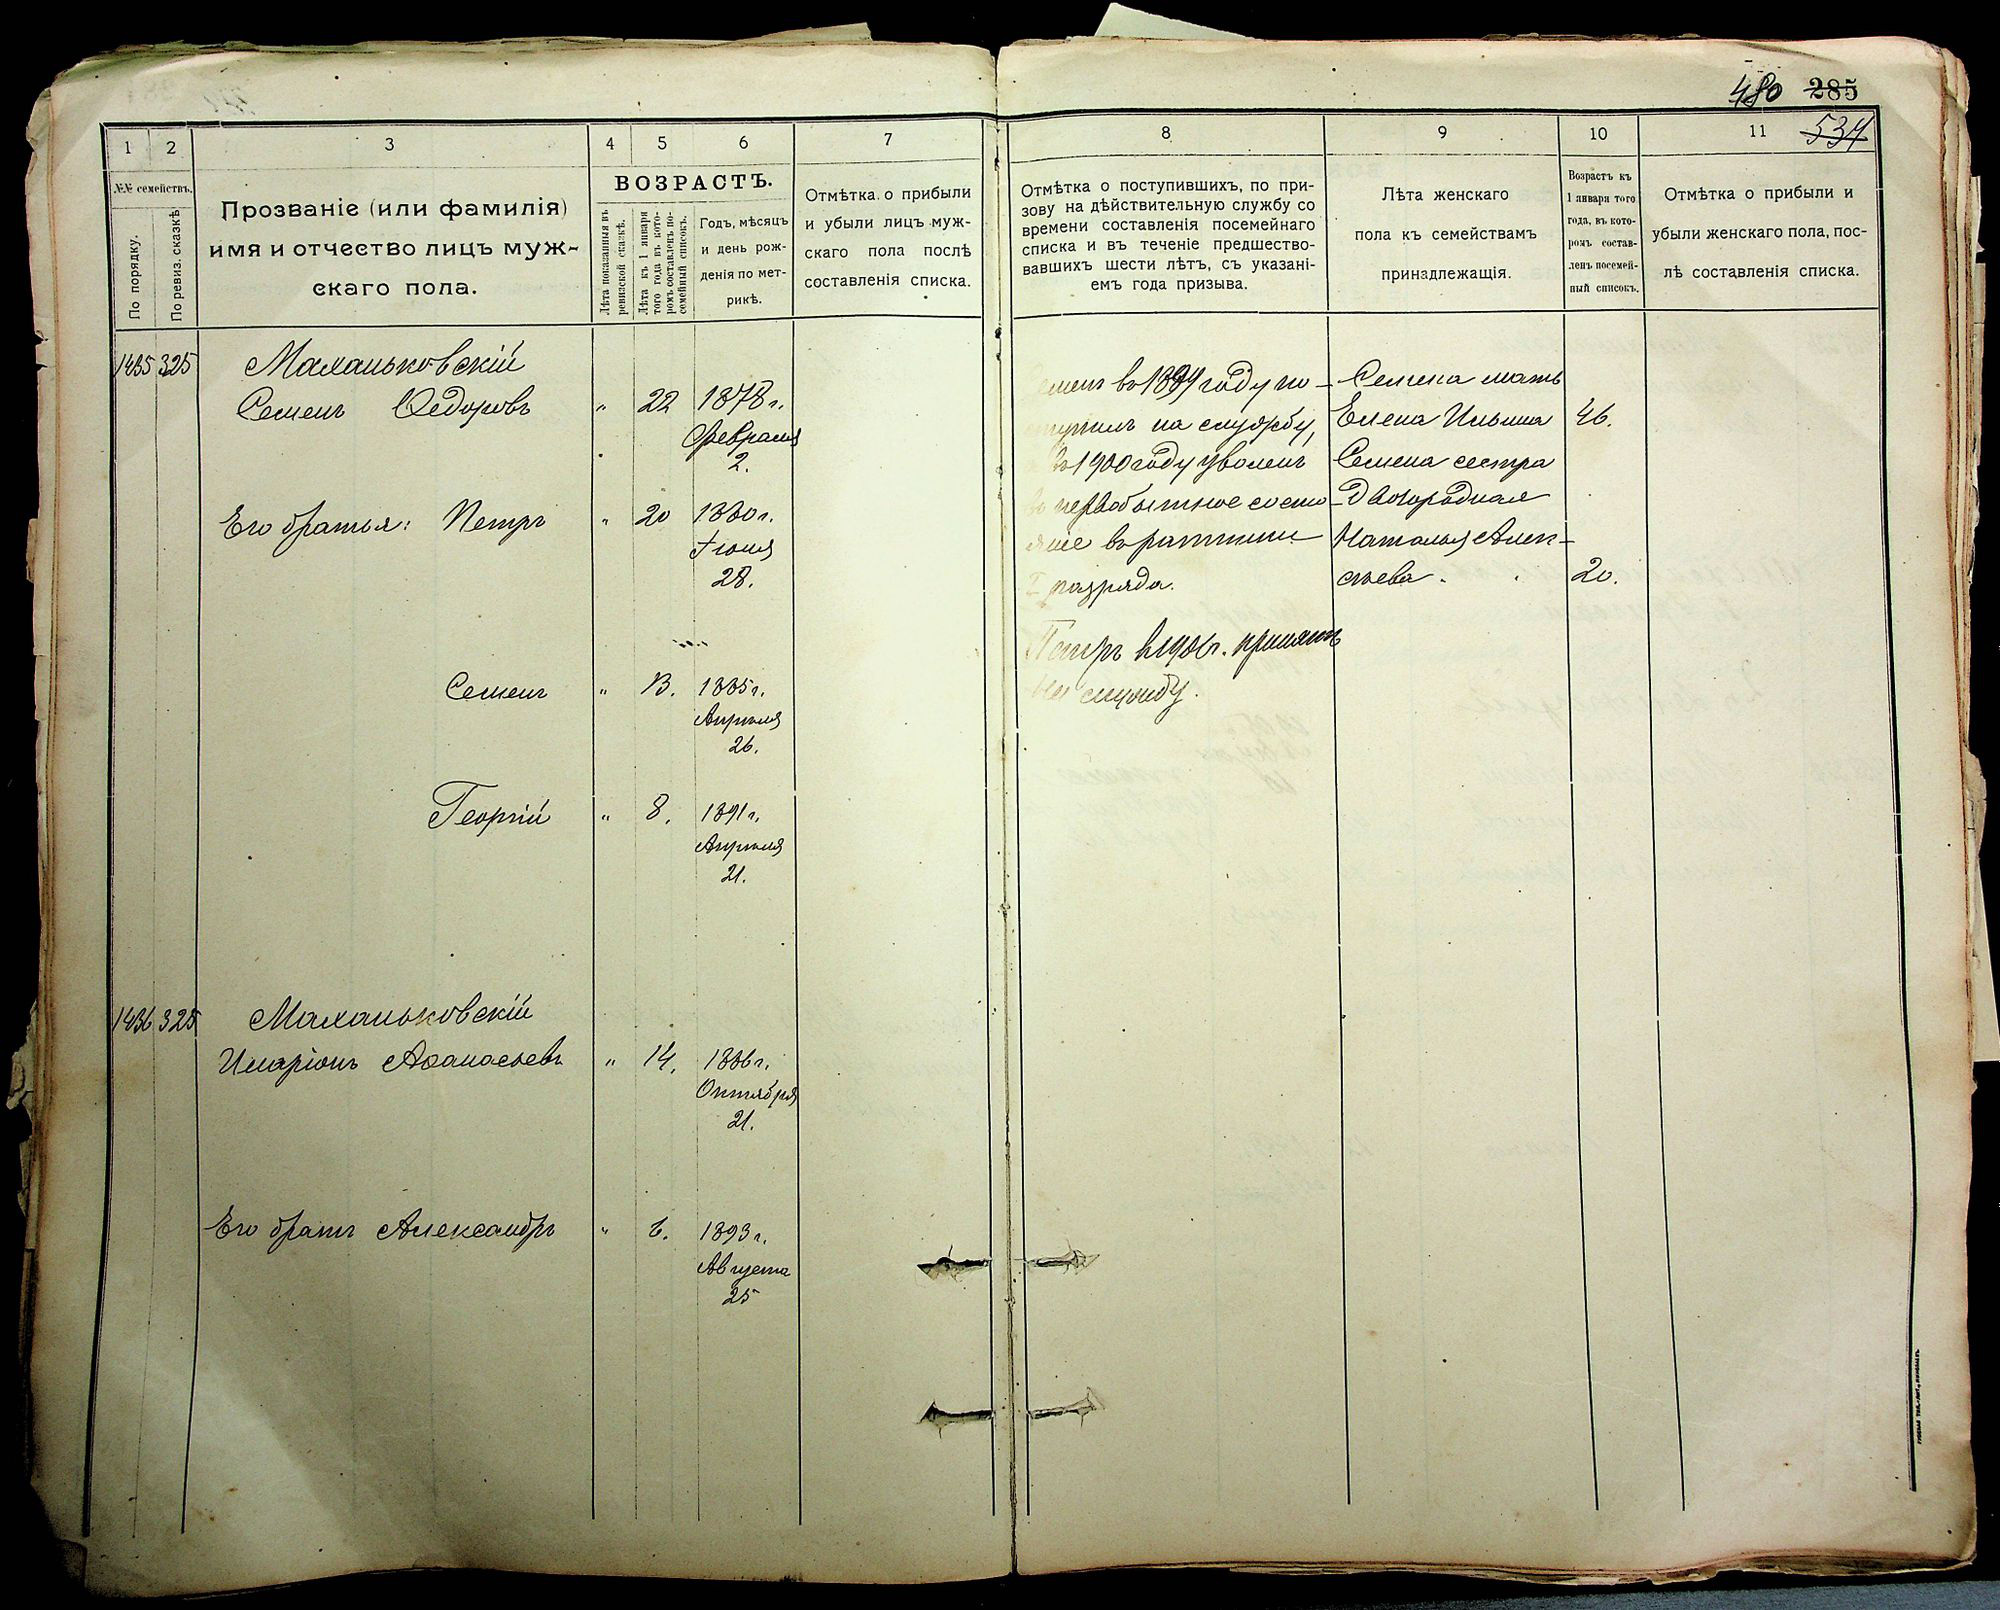 480 285
534
1 2 3 4 5 6 7
№№ семействъ.
По порядку.
По ревиз. сказкѣ
Прозваніе (или фамилія)
имя и отчество лицъ муж-
скаго пола.
ВОЗРАСТЪ.
Лѣта показанныя въ
ревизской сказкѣ.
Лѣта къ 1 января
того года въ кото-
ромъ составленъ по-
семейный списокъ.
Годъ, мѣсяцъ
и день рож-
денія по мет-
рикѣ.
Отмѣтка о прибыли
и убыли лицъ муж-
скаго пола послѣ
составленія списка.
8 9 10 11
Отмѣтка о поступившихъ, по при-
зову на дѣйствительную службу со
времени составленія посемейнаго
списка и въ теченіе предшество-
вавшихъ шести лѣтъ, съ указані-
емъ года призыва.
Лѣта женскаго
пола къ семействамъ
принадлежащія.
Возрастъ къ
1 января того
года, въ кото-
ромъ состав-
ленъ посемей-
ный списокъ.
Отмѣтка о прибыли и
убыли женскаго пола, пос-
лѣ составленія списка.
1435 325 Маханьковскій
Семенъ Ѳедоровъ " 22 1878 г.
Февраля
2.
Его братья: Петръ " 20 1880 г.
Іюня
28.
Семенъ " 13. 1885 г.
Апрѣля
26.
Георгій " 8. 1891 г.
Апрѣля
21.
1436 325 Маханьковскій
Иларіонъ Аѳанасьевъ " 14. 1886 г.
Октября
21.
Его братъ Александръ " 6. 1893 г.
Августа
25
Семенъ въ 1899 году по-
ступилъ на службу,
въ 1900 году уволенъ
въ первобытное состо-
яніе въ ратники
I разряда.
Петръ в 1901 г. принятъ
на службу.
Семена мать
Елена Ильина 46.
Семена сестра
Двоюродная
Наталья Алек-
сѣева. 20.